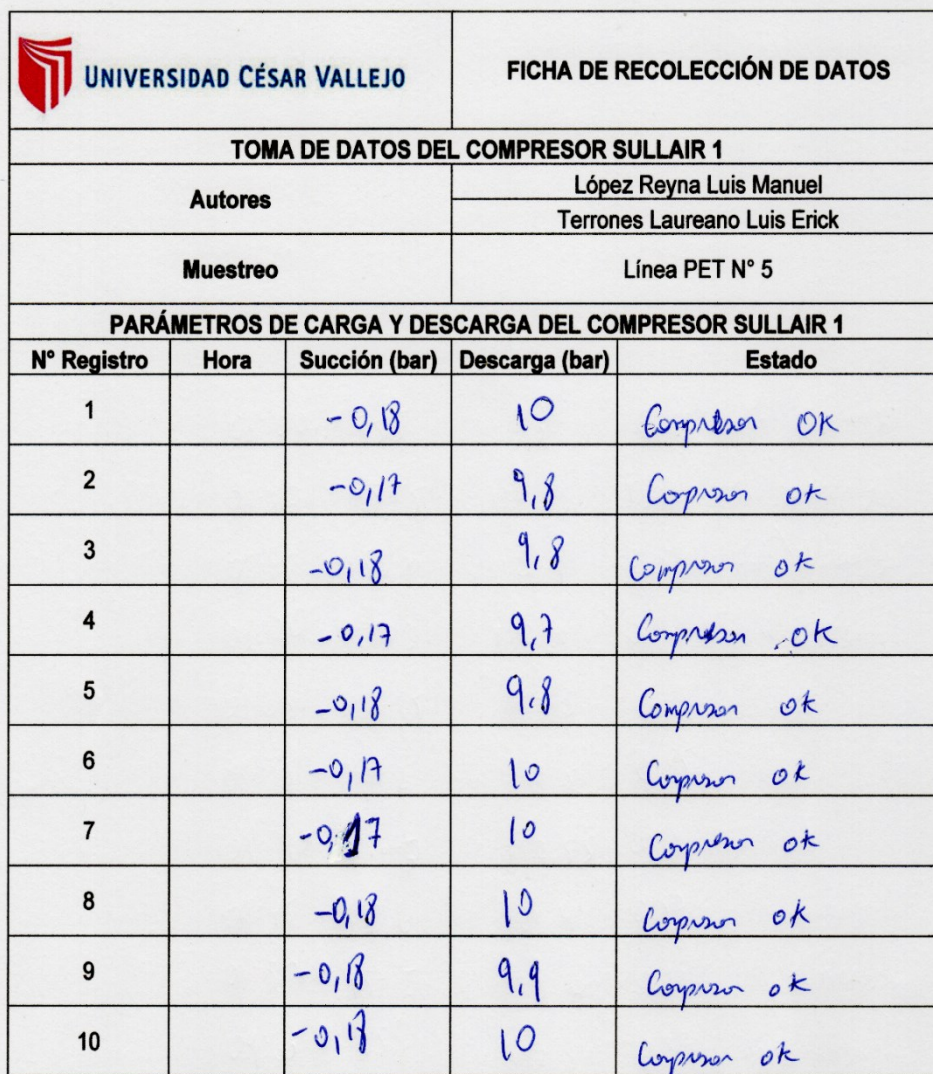 UNIVERSIDAD CÉSAR VALLEJO
FICHA DE RECOLECCIÓN DE DATOS
TOMA DE DATOS DEL COMPRESOR SULLAIR 1
Autores
López Reyna Luis Manuel
Terrones Laureano Luis Erick
Muestreo Línea PET N° 5
PARÁMETROS DE CARGA Y DESCARGA DEL COMPRESOR SULLAIR 1
N° Registro Hora Succión (bar) Descarga (bar) Estado
1 -0,18 10 Compresor OK
2 -0,17 9,8 Compresor ok
3 -0,18 9,8 Compresor ok
4 -0,17 9,7 Compresor ok
5 -0,18 9.8 Compresor ok
6 -0,17 10 Compresor ok
7 -0,17 10 Compresor ok
8 -0,18 10 Compresor ok
9 -0,18 9,9 Compresor ok
10 -0,18 10 Compresor ok